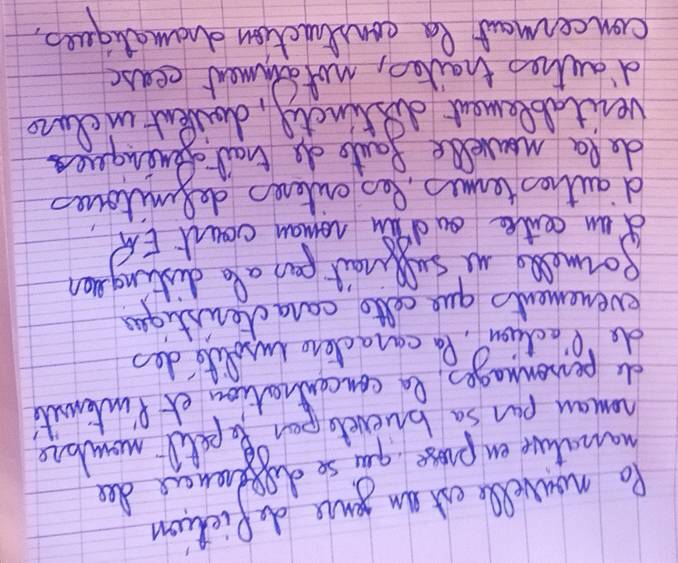 La nouvelle est un genre de fiction
narrative en prose qui se differencie du
roman par sa brieveté par le petit nombre
de personnages, la concentration et l'intensité
de l'action, la caractere insolite des
evenements que cette caracteristique
formelle ne suffirait pas a la distinguer
d'un conte ou d'un roman court En
d'autres termes, les criteres definitoires
de la nouvelle faute de trait generiques
veritablement distinctif, doivent inclure
d'autres traits, notamment ceux
concernant la construction dramatiques,